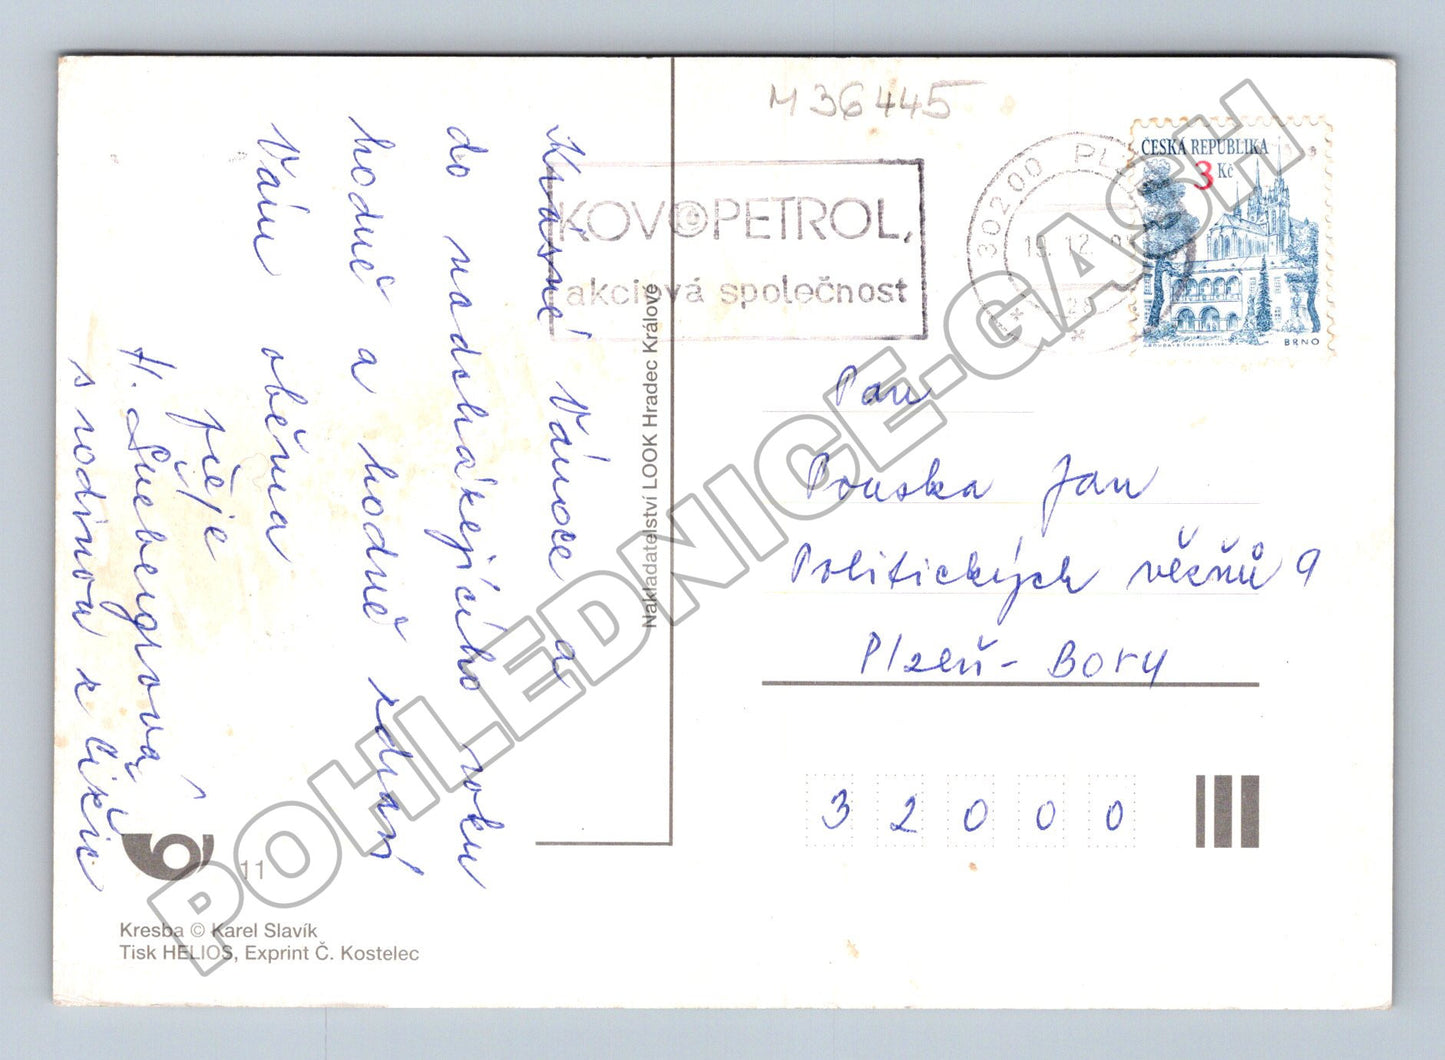 M 36445
302 00 PL
19. 12.
ČESKÁ REPUBLIKA
3 Kč
BRNO
KOVOPETROL,
akciová společnost
Krásné Vánoce a
do nadcházejícího roku
hodně a hodně zdraví
Vám oběma
přeje
s rodinou z
Nakladatelství LOOK Hradec Králové
Pan
Pouska Jan
Politických věznů 9
Plzeň - Bory
32000
11
Kresba © Karel Slavík
Tisk HELIOS, Exprint Č. Kostelec
POHLEDNICE-GASH